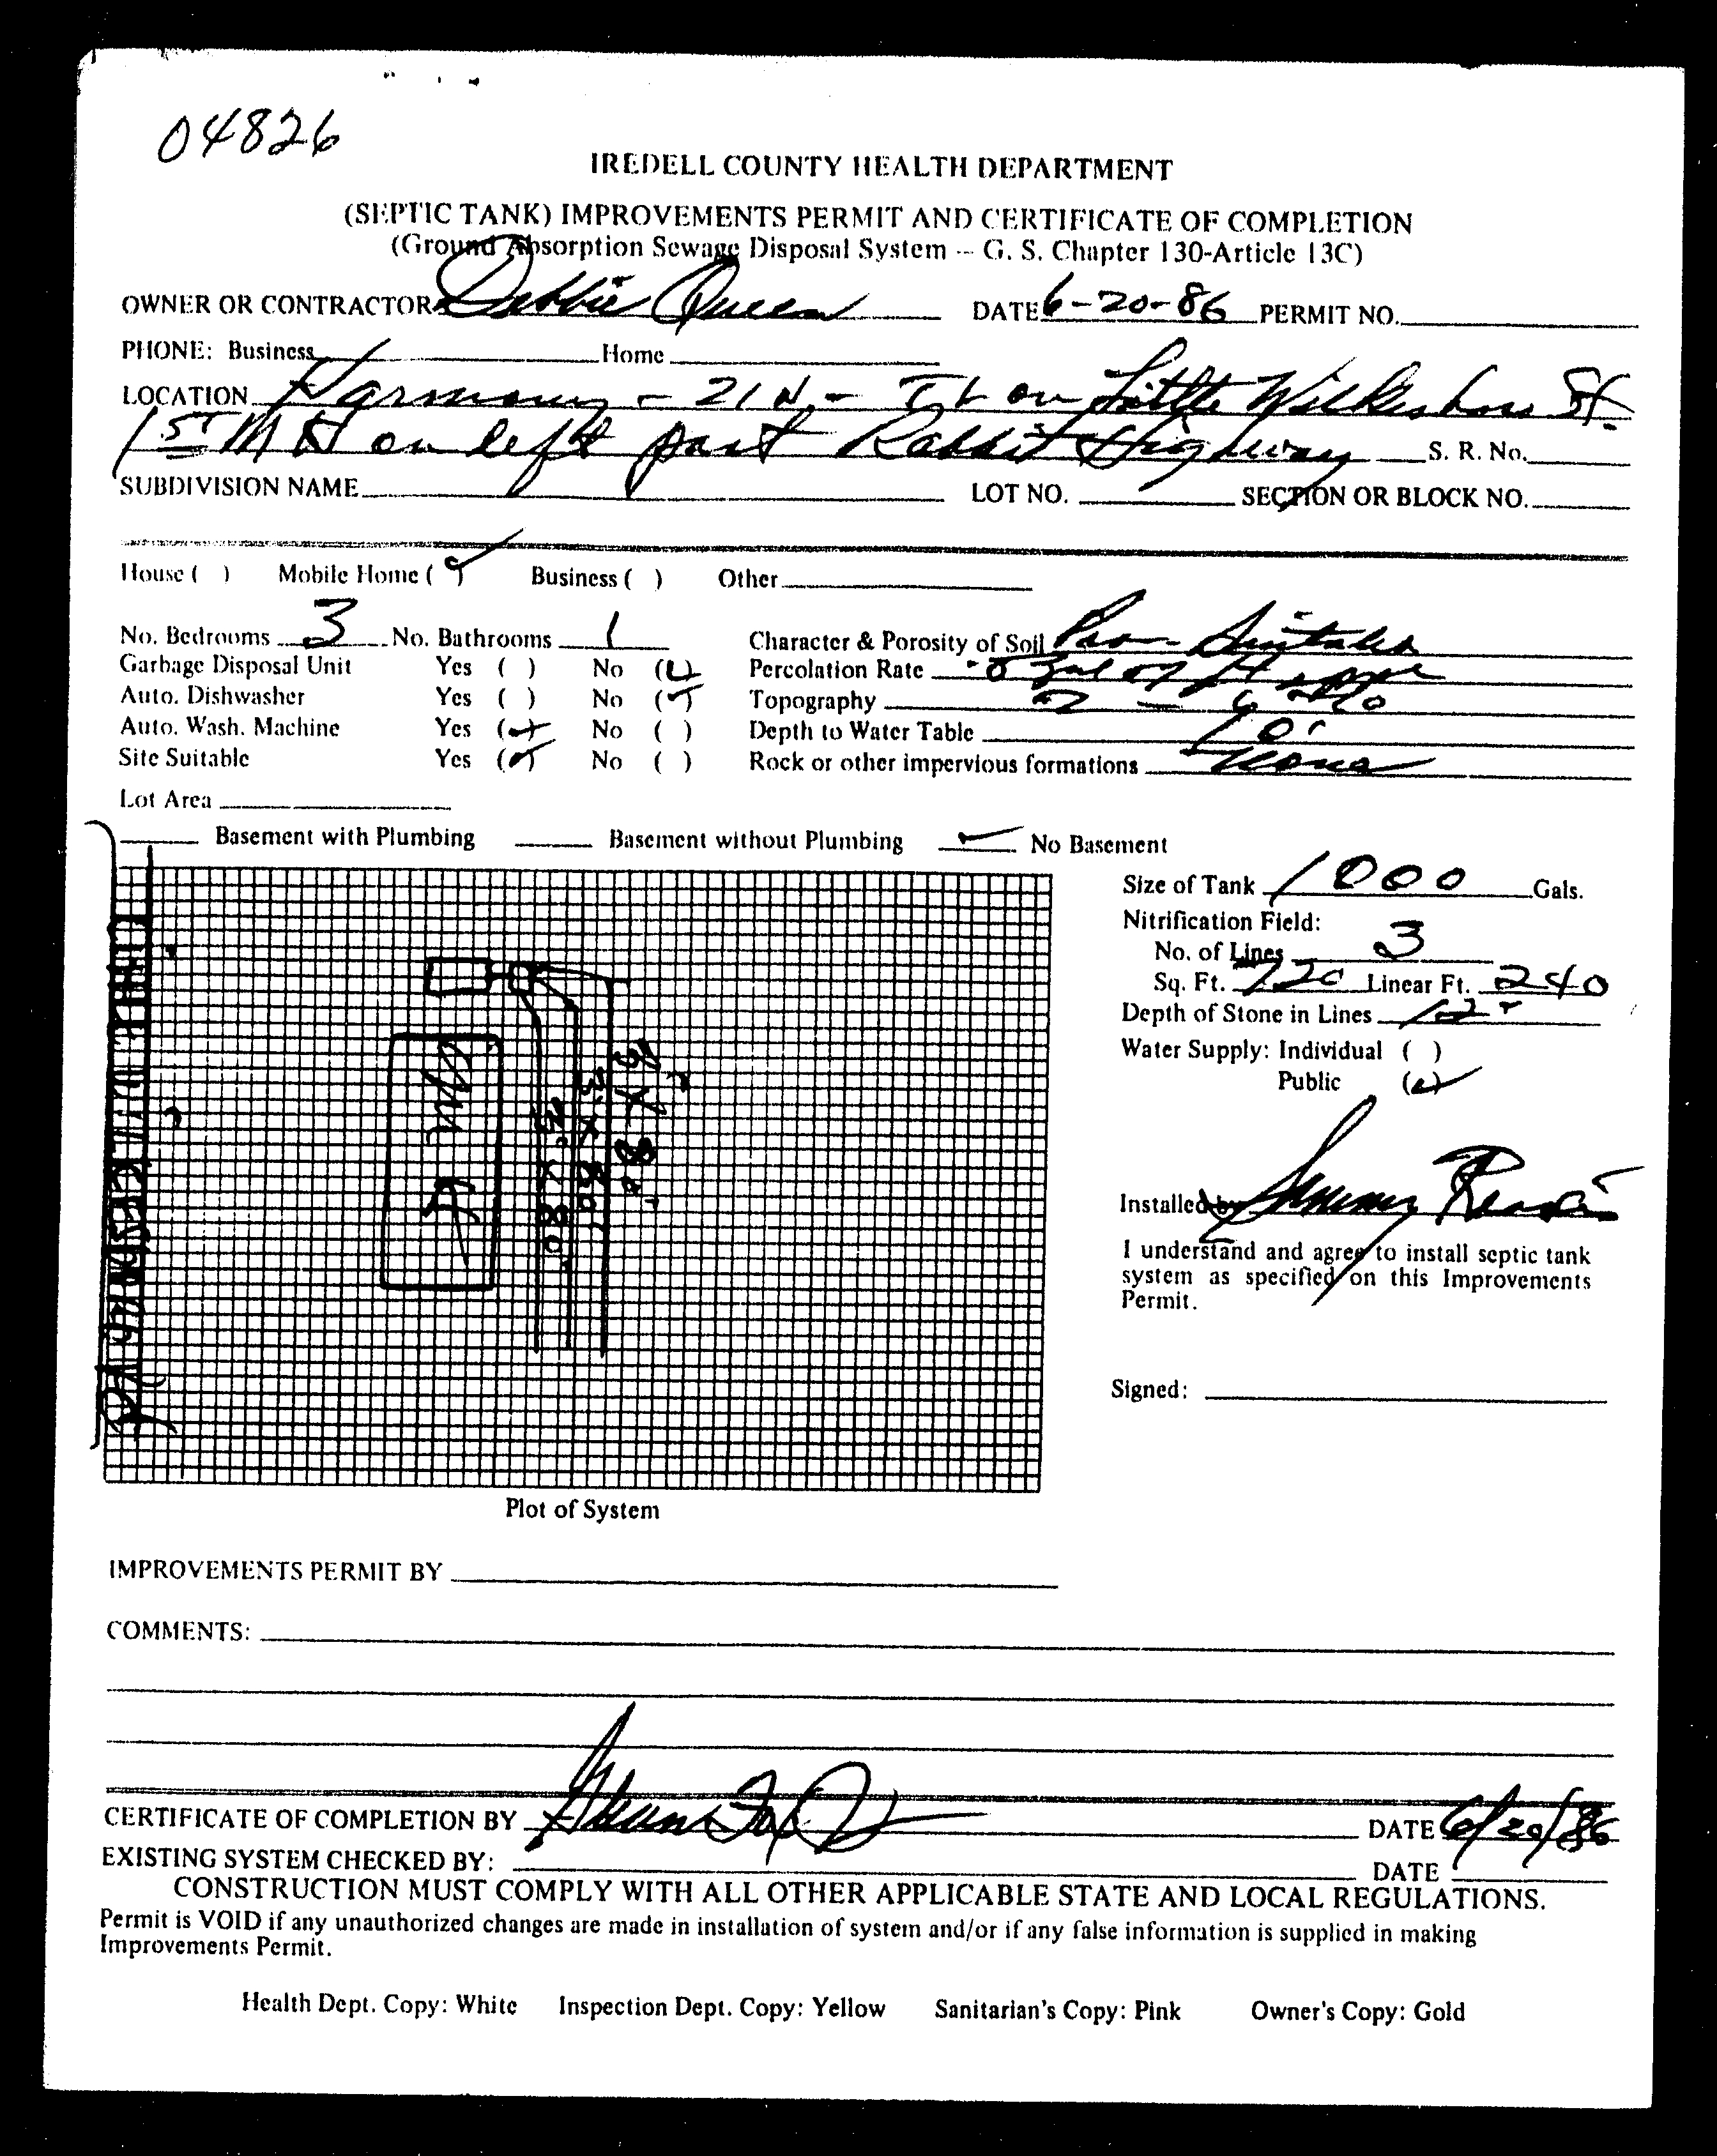 04826
IREDELL COUNTY HEALTH DEPARTMENT
(SEPTIC TANK) IMPROVEMENTS PERMIT AND CERTIFICATE OF COMPLETION
(Ground Absorption Sewage Disposal System -- G. S. Chapter 130-Article 13C)
OWNER OR CONTRACTOR Debbie Queen DATE 6-20-86 PERMIT NO.
PHONE: Business Home
LOCATION Harmony - 21 N - T L on Little Wilkesboro St.
1st M H on left past Rabbit Highway S. R. No.
SUBDIVISION NAME LOT NO. SECTION OR BLOCK NO.
House ( ) Mobile Home (✓) Business ( ) Other
No. Bedrooms 3 No. Bathrooms 1 Character & Porosity of Soil
Garbage Disposal Unit Yes ( ) No (✓) Percolation Rate
Auto. Dishwasher Yes ( ) No (✓) Topography 2 - 6 %
Auto. Wash. Machine Yes (✓) No ( ) Depth to Water Table 10'
Site Suitable Yes (✓) No ( ) Rock or other impervious formations None
Lot Area
Basement with Plumbing Basement without Plumbing ✓ No Basement
Size of Tank 1000 Gals.
Nitrification Field:
No. of Lines 3
Sq. Ft. 720 Linear Ft. 240
Depth of Stone in Lines 12"
Water Supply: Individual ( )
Public (✓)
3' X 80'
3' X 80'
3' X 80'
Installed by
I understand and agree to install septic tank
system as specified on this Improvements
Permit.
Signed:
Plot of System
IMPROVEMENTS PERMIT BY
COMMENTS:
CERTIFICATE OF COMPLETION BY DATE 6/20/86
EXISTING SYSTEM CHECKED BY: DATE
CONSTRUCTION MUST COMPLY WITH ALL OTHER APPLICABLE STATE AND LOCAL REGULATIONS.
Permit is VOID if any unauthorized changes are made in installation of system and/or if any false information is supplied in making
Improvements Permit.
Health Dept. Copy: White Inspection Dept. Copy: Yellow Sanitarian's Copy: Pink Owner's Copy: Gold